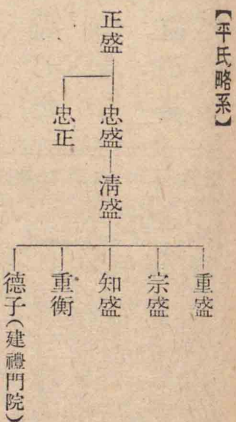 【平氏略系】
正盛
忠盛
忠正
淸盛
重盛
宗盛
知盛
重衡
德子(建禮門院)